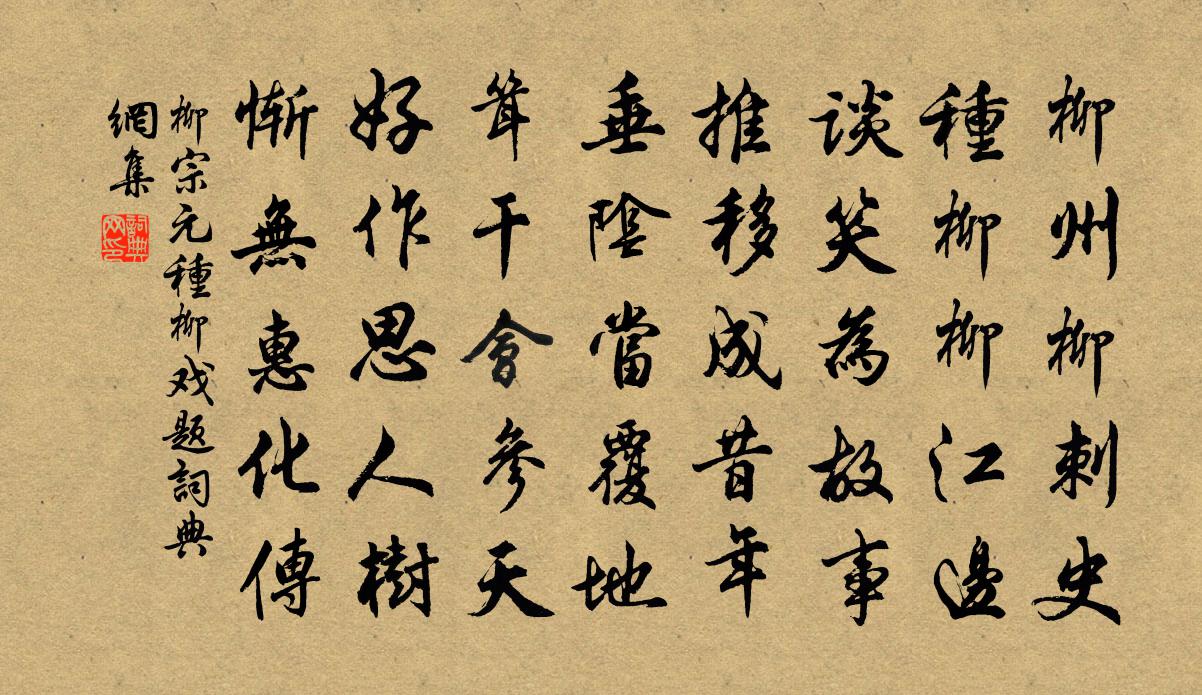 柳州柳刺史
種柳柳江邊
谈笑為故事
推移成昔年
垂陰當覆地
耸干會參天
好作思人樹
慚無惠化傳
柳宗元種柳戏题詞典
網集
詞典网印